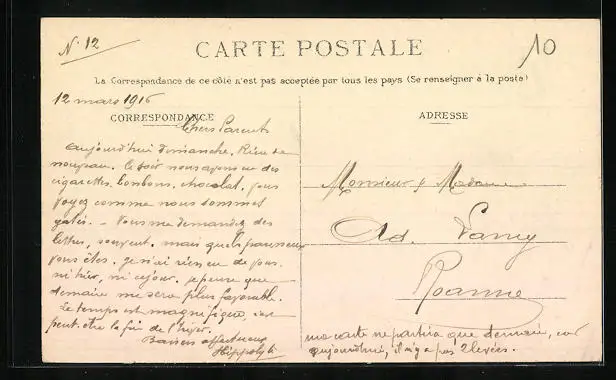 N. 12
10
CARTE POSTALE
La Correspondance de ce côté n'est pas acceptée par tous les pays (Se renseigner à la poste)
12 mars 1916
CORRESPONDANCE
ADRESSE
Chers Parents
Aujourd'hui Dimanche. Rien de
nouveau. Ce soir nous ayons eu des
cigarettes, bonbons, chocolat, vous
voyez comme nous sommes
gatés. - Vous me demandez des
lettres, souvent, mais quels paresseux
vous êtes. je n'ai rien eu de vous
ni hier, ni ce jour. je pense que
demain me sera plus favorable.
Le temps est magnifique, c'est
peut-être la fin de l'hiver.
Baisers affectueux
Hippolyte
Monsieur & Madame
Ad.
Roanne
ma carte ne partira que demain, car
aujourd'hui, il n'y a pas 2 levées.